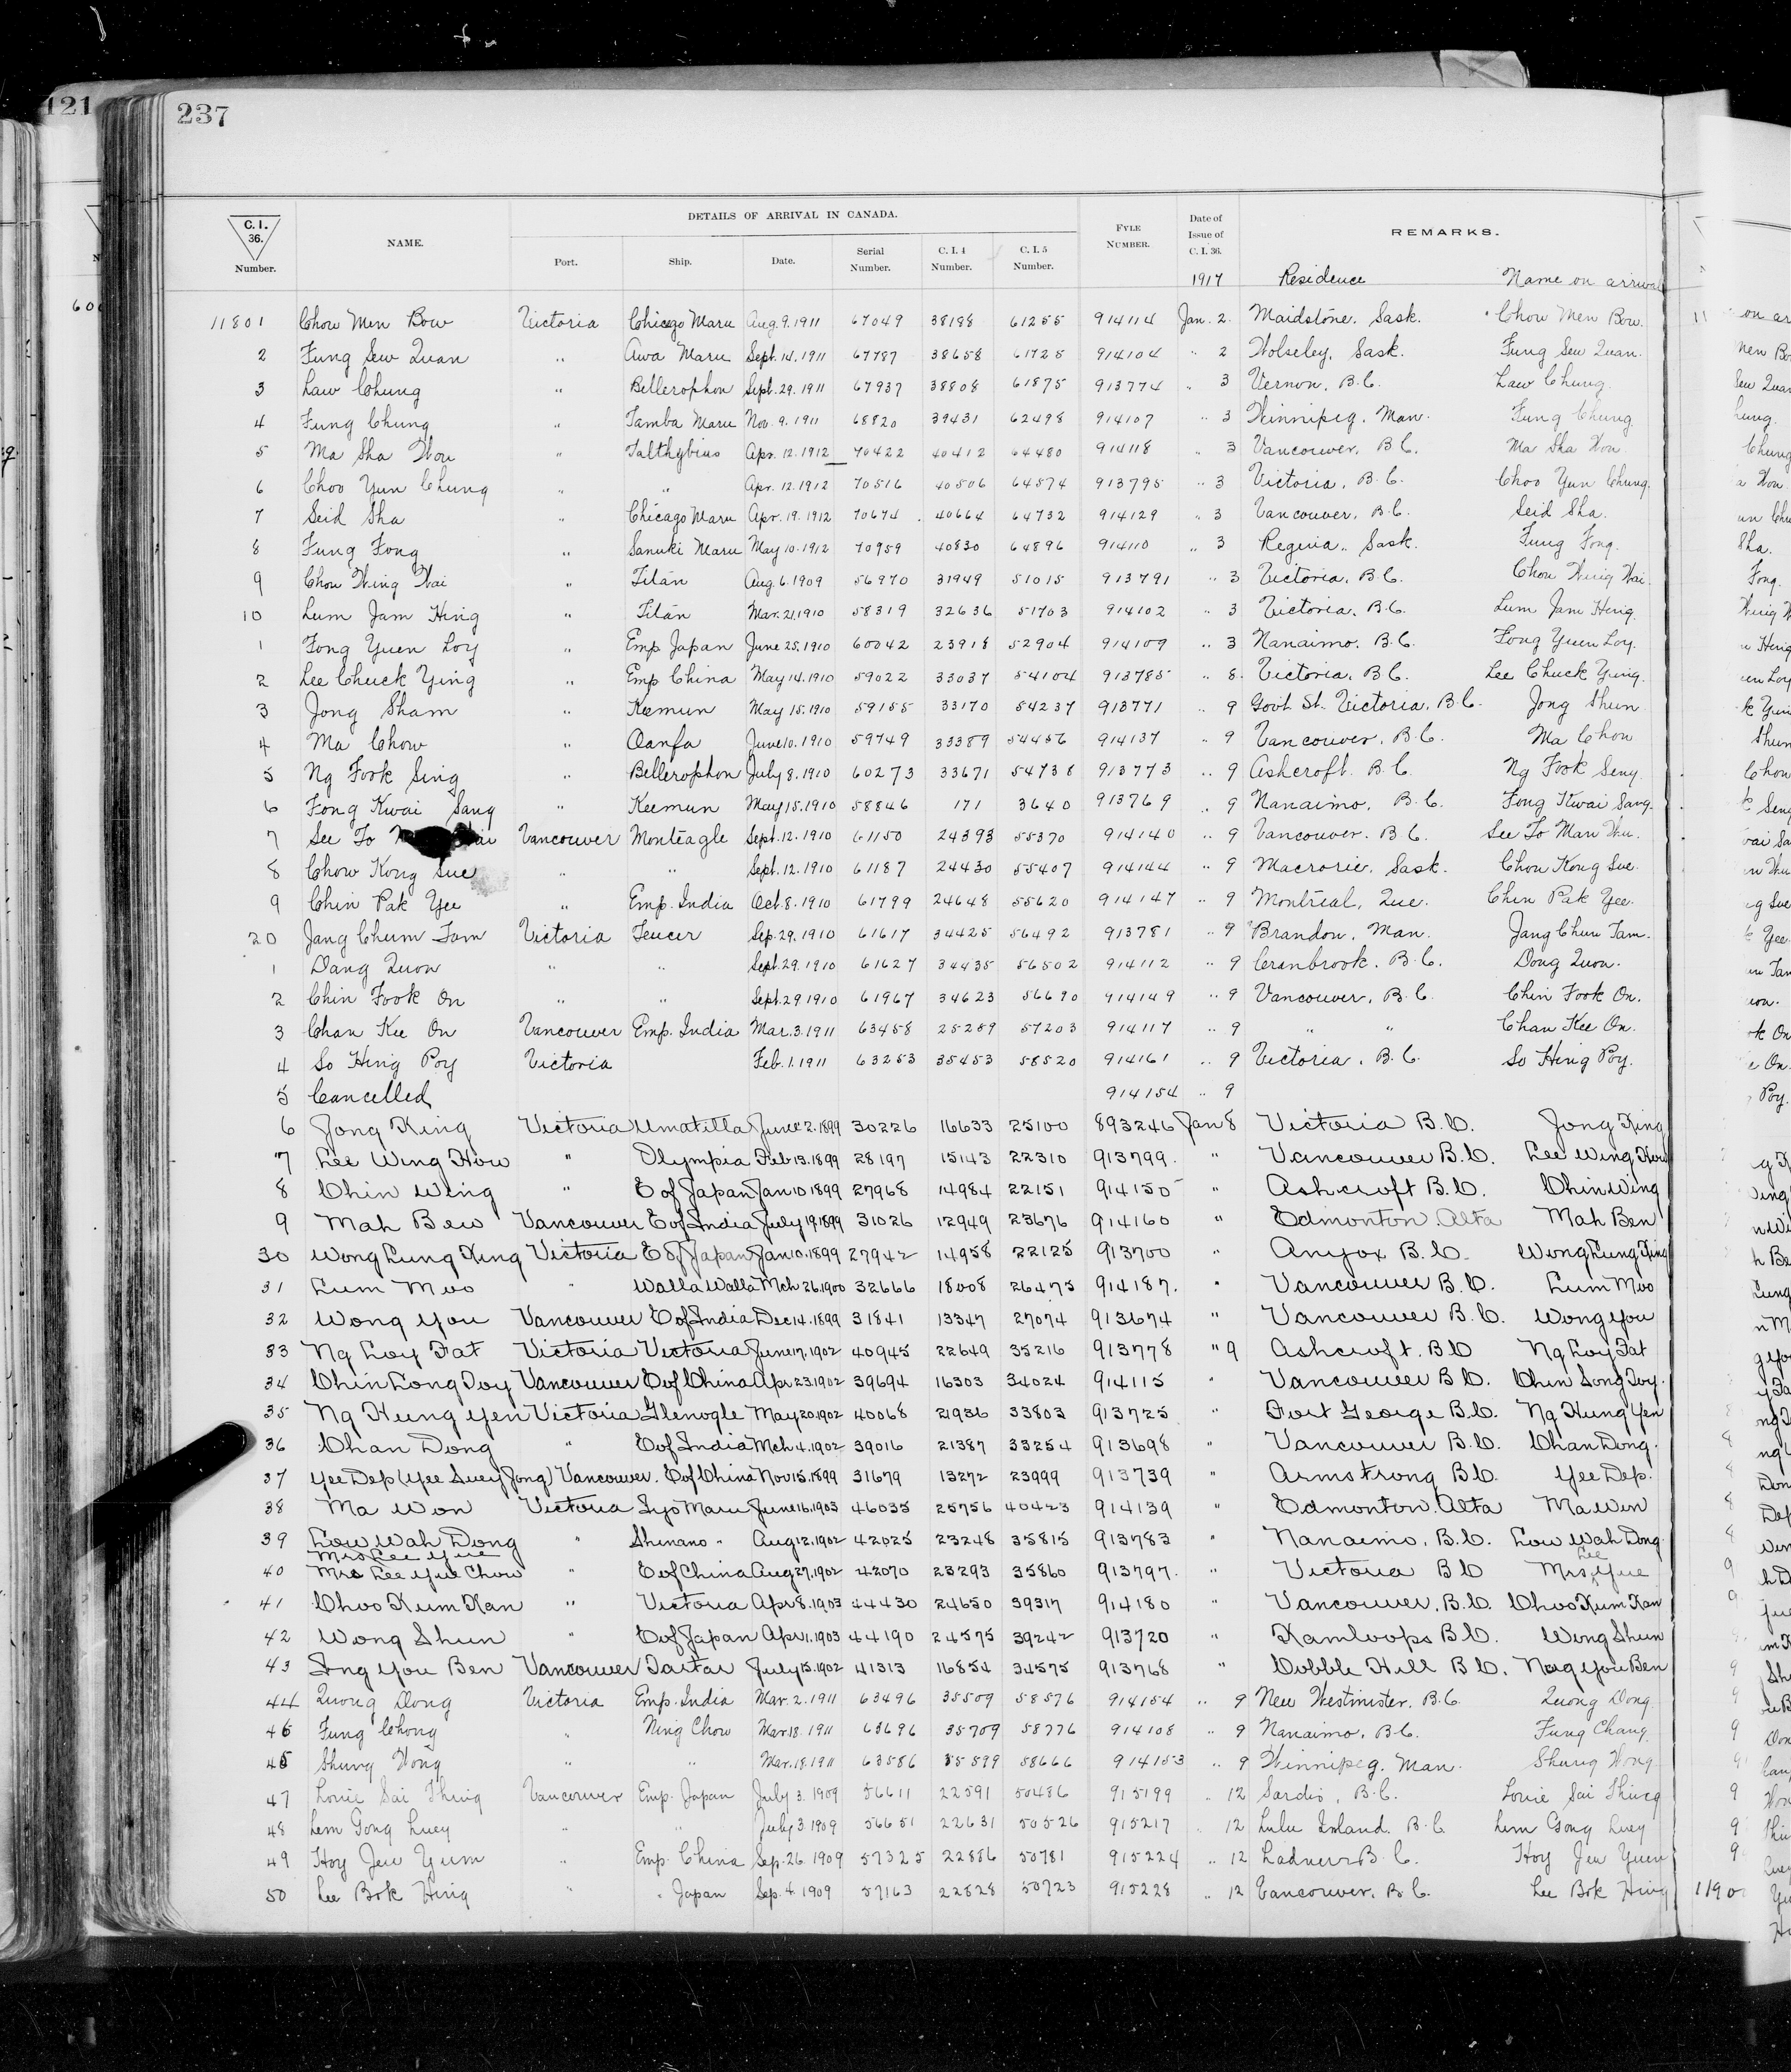 121
237
C. I. 36. Number.
NAME.
DETAILS OF ARRIVAL IN CANADA.
Port. Ship. Date. Serial Number. C. I. 4 Number. C. I. 5 Number.
FYLE NUMBER.
Date of Issue of C. I. 36.
REMARKS.
1917 Residence Name on arrival
11801 Chow Men Bow Victoria Chicago Maru Aug. 9. 1911 67049 38188 61255 914114 Jan. 2. Maidstone. Sask. Chow Men Bow.
2 Fung Sew Quan " Awa Maru Sept. 14. 1911 67787 38658 61725 914104 " 2 Wolseley, Sask. Fung Sew Quan.
3 Law Chung " Bellerophon Sept. 29. 1911 67937 38808 61875 913774 " 3 Vernon, B.C. Law Chung.
4 Fung Chung " Tamba Maru Nov. 9. 1911 68820 39431 62498 914107 " 3 Winnipeg. Man. Fung Chung
5 Ma Sha Wou " Talthybius Apr. 12. 1912 70422 40412 64480 914118 " 3 Vancouver, B.C. Ma Sha Wou
6 Choo Yun Chung " " Apr. 12. 1912 70516 40506 64574 913795 " 3 Victoria, B.C. Choo Yun Chung.
7 Seid Sha " Chicago Maru Apr. 19. 1912 70674 40664 64732 914129 " 3 Vancouver, B.C. Seid Sha.
8 Fung Fong " Sanuki Maru May 10. 1912 70959 40830 64896 914110 " 3 Regina, Sask. Fung Fong.
9 Chou Wing Wai " Titan Aug. 6. 1909 56970 31949 51015 913791 " 3 Victoria, B.C. Chou Wing Wai.
10 Lum Jam Hing " Titan Mar. 21, 1910 58319 32636 51703 914102 " 3 Victoria, B.C. Lum Jam Hing.
1 Fong Yuen Loy " Emp Japan June 25. 1910 60042 23918 52904 914109 " 3 Nanaimo. B.C. Fong Yuen Loy.
2 Lee Chuck Ying " Emp China May 14. 1910 59022 33037 54104 913785 " 8. Victoria, B.C. Lee Chuck Ying.
3 Jong Sham " Keemun May 15. 1910 59155 33170 54237 913771 " 9 Govt St. Victoria, B.C. Jong Shun
4 Ma Chow " Oanfa June 10. 1910 59749 33389 54456 914137 " 9 Vancouver, B.C. Ma Chow
5 Ng Fook Sing " Bellerophon July 8. 1910 60273 33671 54738 913773 " 9 Ashcroft. B.C. Ng Fook Seng
6 Fong Kwai Sang " Keemun May 15. 1910 58846 171 3640 913769 " 9 Nanaimo, B.C. Fong Kwai Sang.
7 See To Vancouver Monteagle Sept. 12. 1910 61150 24393 55370 914140 " 9 Vancouver. B.C. See To Man Wu.
8 Chow Kong Sue " " Sept. 12. 1910 61187 24430 55407 914144 " 9 Macrorie, Sask. Chou Kong Sue.
9 Chin Pak Yee " Emp. India Oct. 8. 1910 61799 24648 55620 914147 " 9 Montreal, Que. Chin Pak Yee.
20 Jang Chum Tam Victoria Teucer Sep. 29, 1910 61617 34425 56492 913781 " 9 Brandon, Man. Jang Chun Tam.
1 Dang Quon " " Sept. 29. 1910 61627 34435 56502 914112 " 9 Cranbrook. B.C. Dong Quon.
2 Chin Fook On " " Sept. 29 1910 61967 34623 56690 914149 " 9 Vancouver, B.C. Chin Fook On.
3 Chan Kee On Vancouver Emp. India Mar. 3. 1911 63458 25259 57203 914117 " 9 " " Chan Kee On.
4 So Hing Poy Victoria Feb. 1. 1911 63253 35453 58520 914161 " 9 Victoria, B.C. So Hing Poy.
5 Cancelled 914154 " 9
6 Jong King Victoria Umatilla June 2. 1899 30226 16633 25100 893246 Jan 8 Victoria B.C. Jong King
7 Lee Wing How " Olympia Feb 13. 1899 28197 15143 22310 913799. " Vancouver B.C. Lee Wing How
8 Chin Wing " E of Japan Jan 10 1899 27968 14984 22151 914150 " Ashcroft B.C. Chin Wing
9 Mah Bew Vancouver E of India July 19. 1899 31026 12949 23676 914160 " Edmonton Alta Mah Ben
30 Wong Lung King Victoria E of Japan Jan 10. 1899 27942 14958 22125 913700 " Anyox B.C. Wong Lung King
31 Lum Moo " Walla Walla Mch 26. 1900 32666 18008 26475 914187. " Vancouver B.C. Lum Moo
32 Wong You Vancouver E of India Dec 14. 1899 31841 13347 27074 913674 " Vancouver B.C. Wong You
33 Ng Loy Fat Victoria Victoria June 17. 1902 40945 22649 35216 913778 " 9 Ashcroft. B.C Ng Loy Fat
34 Chin Long Doy Vancouver E of China Apr 23 1902 39694 16303 34024 914115 " Vancouver B.C. Chin Song Doy.
35 Ng Hung Yen Victoria Glenogle May 20. 1902 40068 21936 33803 913725 " Fort George B.C. Ng Hung Yen
36 Chan Dong " E of India Mch 4. 1902 39016 21387 33254 913698 " Vancouver B.C. Chan Dong.
37 Yee Dep (Yee Suey Jong) Vancouver. E of China Nov 15. 1899 31679 13272 23999 913739 " Armstrong B.C. Yee Dep.
38 Ma Won Victoria Iyo Maru June 16. 1903 46035 25756 40423 914139 " Edmonton. Alta Ma Wen
39 Low Wah Dong " Shinano " Aug 12. 1902 42025 23248 35815 913783 " Nanaimo, B.C. Low Wah Dong.
Mrs Lee Yue
40 Mrs Lee Yue Chow " E of China Aug 27. 1902 42070 23293 35860 913797. " Victoria B C Mrs Lee Yue
41 Choo Kum Kan " Victoria Apr 8. 1903 44430 24650 39317 914180 " Vancouver. B.C. Choo Kum Kan
42 Wong Shun " E of Japan Apr 1. 1903 44190 24575 39242 913720 " Kamloops B.C. Wong Shun
43 Ing You Ben Vancouver Tartar July 15. 1902 41313 16854 34575 913768 " Cobble Hill B.C. Ng You Ben
44 Quong Dong Victoria Emp. India Mar. 2. 1911 63496 35509 58576 914154 " 9 New Westminister. B.C. Quong Dong.
46 Fung Chong " Ning Chow Mar. 18. 1911 63696 35709 58776 914108 " 9 Nanaimo, B.C. Fung Chang.
45 Shung Wong " " Mar. 18. 1911 63586 35599 58666 914153 " 9 Winnipeg. Man. Shung Wong
47 Louie Sai Thing Vancouver Emp. Japan July 3. 1909 56611 22591 50486 915199 12 Sardis, B.C. Louie Sai Thing
48 Lem Gong Luey " " July 3 1909 56651 22631 50526 915217 " 12 Lulu Island. B.C Lem Gong Luey
49 Hoy Jew Yum " Emp. China Sep. 26. 1909 57325 22886 50781 915224 " 12 Ladner B.C. Hoy Jew Yuen
50 Lee Bok Hing " " Japan Sep. 4. 1909 57163 22828 50723 915228 " 12 Vancouver, B.C. Lee Bok Hing